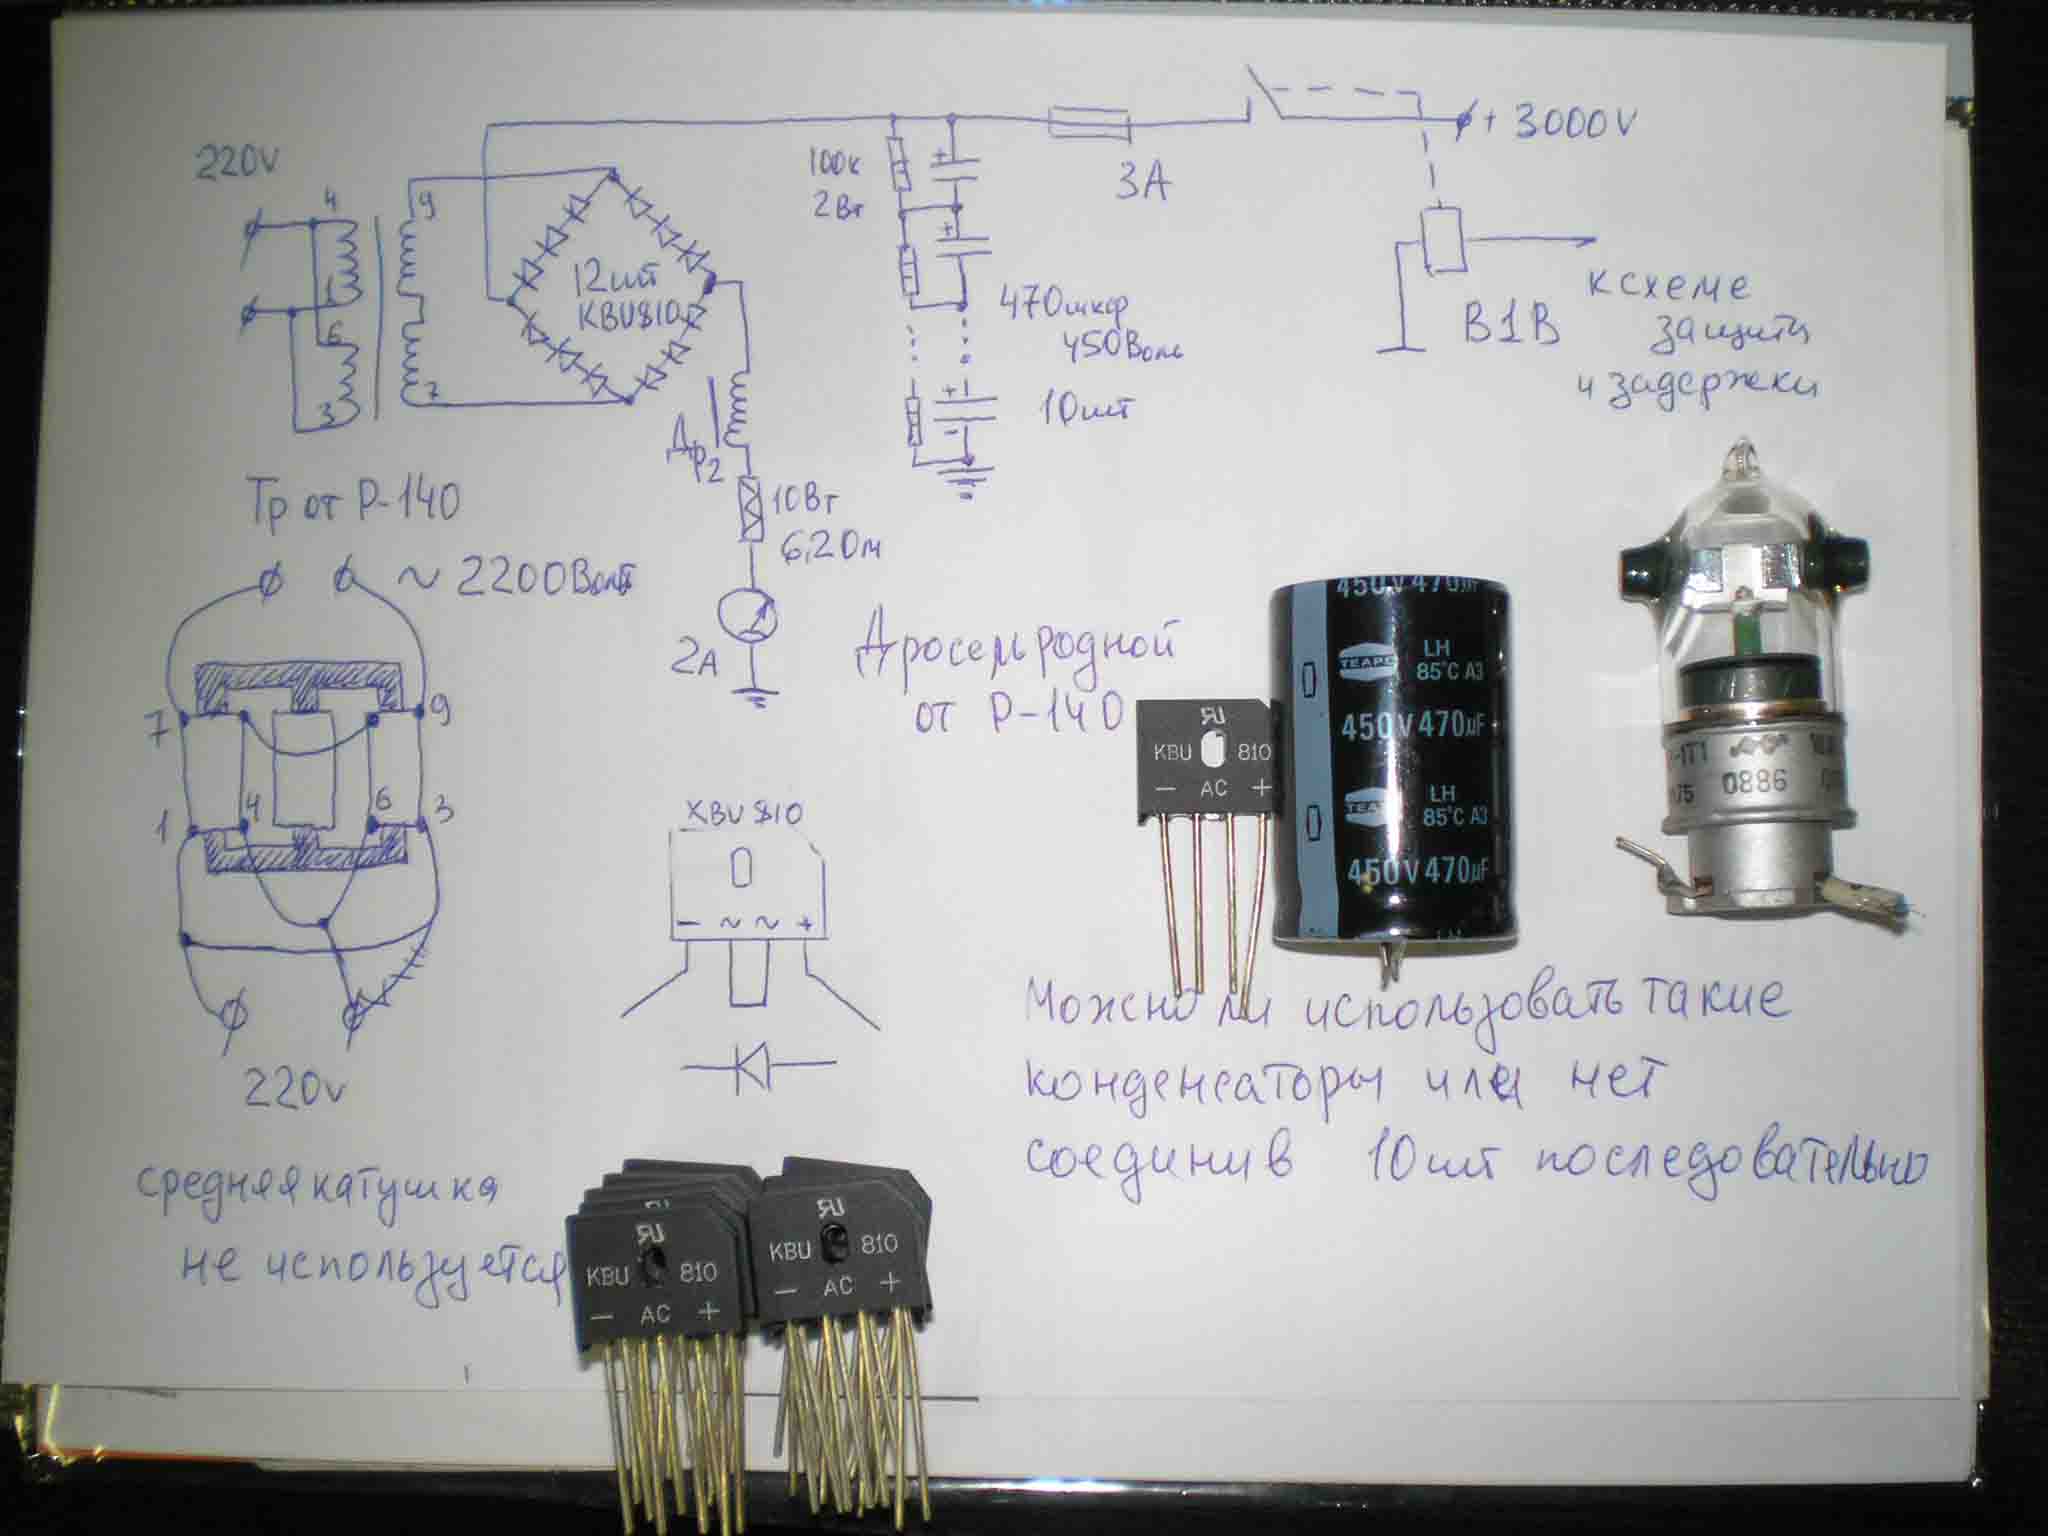 220V
4
9
1
6
3
7
12шт
KBU810
100к
2Вт
+
+
+
-
470мкф
450Воль
10шт
3А
+ 3000V
В1В
к схеме
защиты
и задержки
Др2
10Вт
6,2Ом
2А
Тр от Р-140
~ 2200Вольт
7
9
1
4
6
3
220v
средняя катушка
не используется
Дросель родной
от Р-140
KBU810
- ~ ~ +
KBU 810
- AC +
450V 470µF
TEAPO
LH
85°C A3
450V 470µF
LH
85°C A3
450V 470µF
0886
Можно ли использовать такие
конденсаторы или нет
соединив 10шт последовательно
KBU 810
- AC +
KBU 810
- AC +